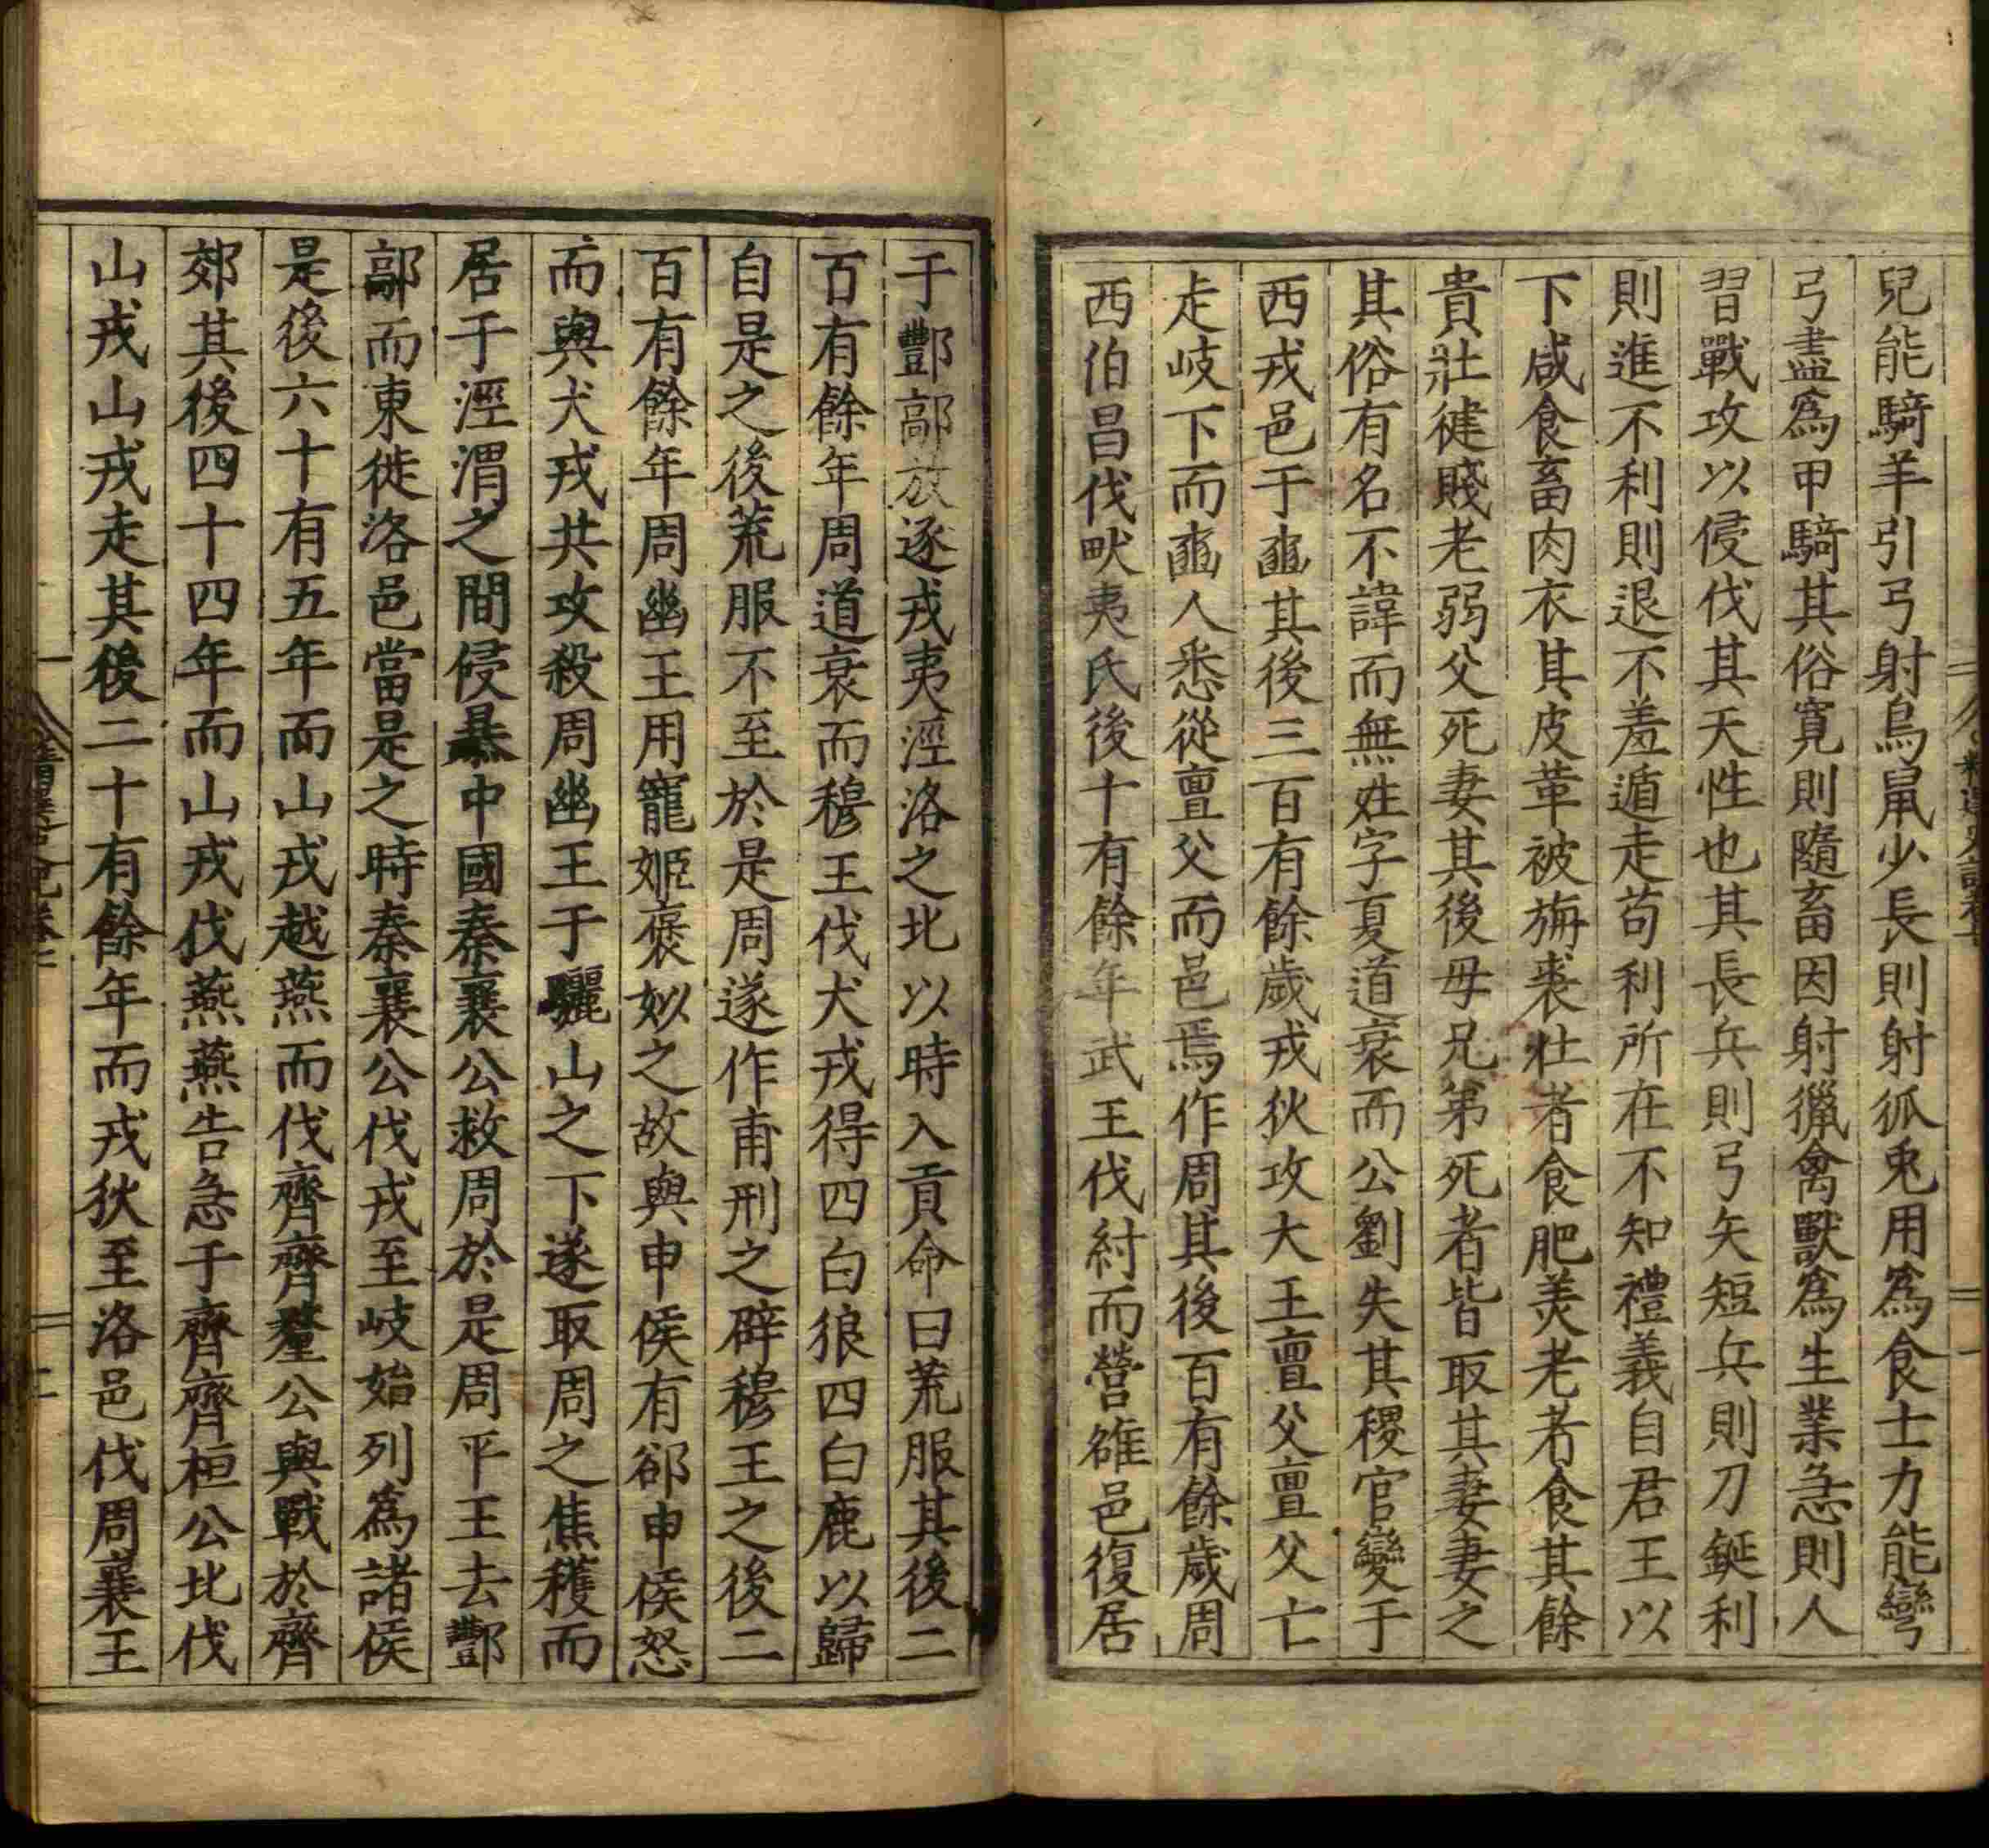 兒能騎羊引弓射鳥鼠少長則射狐兎用為食士力能彎
弓盡爲甲騎其俗寛則隨畜因射獵禽獸爲生業急則人
習戰攻以侵伐其天性也其長兵則弓矢短兵則刀鋋利
則進不利則退不羞遁走苟利所在不知禮義自君王以
下咸食畜肉衣其皮革被旃裘壯者食肥羙老者食其餘
貴壯徤賤老弱父死妻其後母兄苐死者皆取其妻妻之
其俗有名不諱而無姓字夏道衰而公劉失其稷官變于
西戎邑于豳其後三百有餘歲戎狄攻大王亶父亶父亡
走岐下而豳人悉從亶父而邑焉作周其後百有餘歲周
西伯昌伐畎夷氏後十有餘年武王伐紂而營雒邑復居
于酆鄗放逐戎夷涇洛之北以時入貢命曰荒服其後二
百有餘年周道衰而穆王伐犬戎得四白狼四白鹿以歸
自是之後荒服不至於是周遂作甫刑之辟穆王之後二
百有餘年周幽王用寵姬褒姒之故與申侯有郤申侯怒
而與犬戎共攻殺周幽王于驪山之下遂取周之焦穫而
居于涇渭之間侵暴中國秦襄公救周於是周平王去酆
鄗而東徙洛邑當是之時秦襄公伐戎至岐始列爲諸侯
是後六十有五年而山戎越燕而伐齊齊釐公與戰於齊
郊其後四十四年而山戎伐燕燕告急于齊齊桓公北伐
山戎山戎走其後二十有餘年而戎狄至洛邑伐周襄王